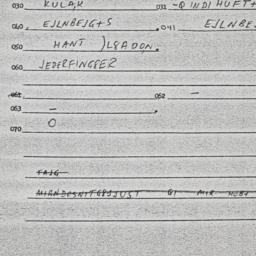 030 KULAK 031 -Q INDI HUFT
040. EJLNBEJG+S 041 EJLNBE
050 HANT JLGADON.
060 JEDERFINGEER
061 062 -
063 -
070 O
FAJG
MIANDESNITGBSJUST GI MIR